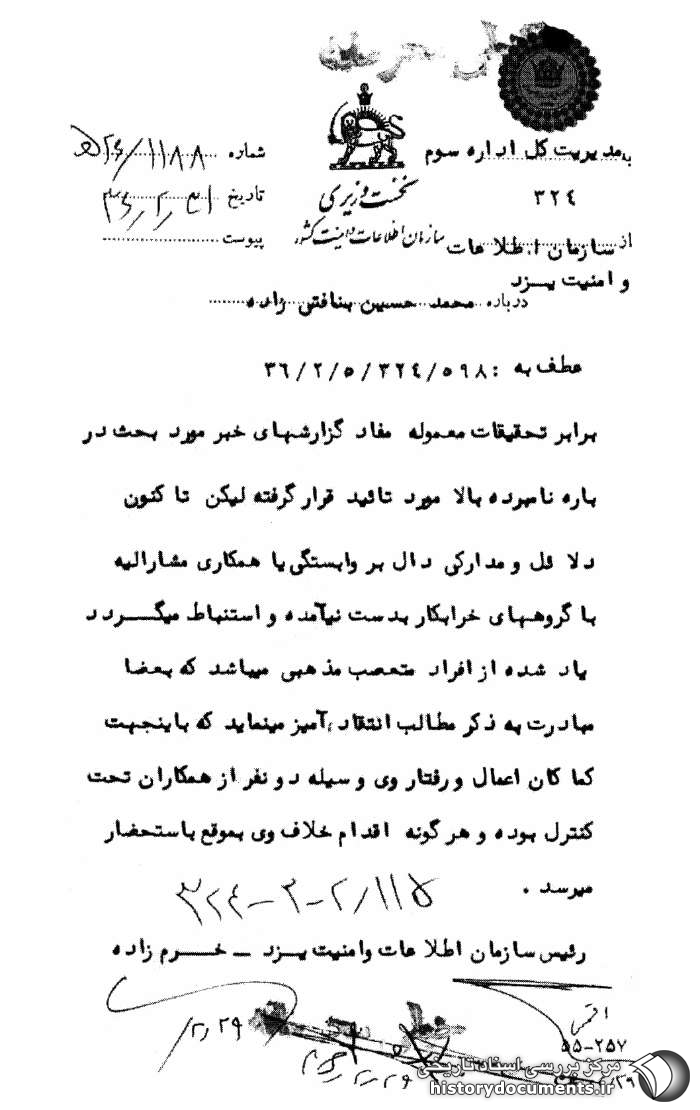 خیلی محرمانه
به مدیریت کل اداره سوم
۳۲٤
از سازمان اطلاعات
و امنیت یزد
نخست وزیری
سازمان اطلاعات و امنیت کشور
شماره ۱۱۸۸/۲۶ﻫ
تاریخ ۳۶/۲/۳۱
پیوست
درباره محمد حسین بنافتی زاده
عطف به : ۳۶/۲/۵/۳۲٤/۵۹۸
برابر تحقیقات معموله مفاد گزارشهای خبر مورد بحث در
باره نامبرده بالا مورد تائید قرار گرفته لیکن تا کنون
دلائل و مدارکی دال بر وابستگی یا همکاری مشارالیه
با گروههای خرابکار بدست نیآمده و استنباط میگردد
یاد شده از افراد متعصب مذهبی میباشد که بعضا
مبادرت به ذکر مطالب انتقاد آمیز مینماید که باینجهت
کما کان اعمال و رفتار وی وسیله دو نفر از همکاران تحت
کنترل بوده و هر گونه اقدام خلاف وی بموقع باستحضار
میرسد .
رئیس سازمان اطلاعات وامنیت یزد _ خرم زاده
۲/۲۹
۵۵-۲۵۷
مرکز بررسی اسناد تاریخی
historydocuments.ir